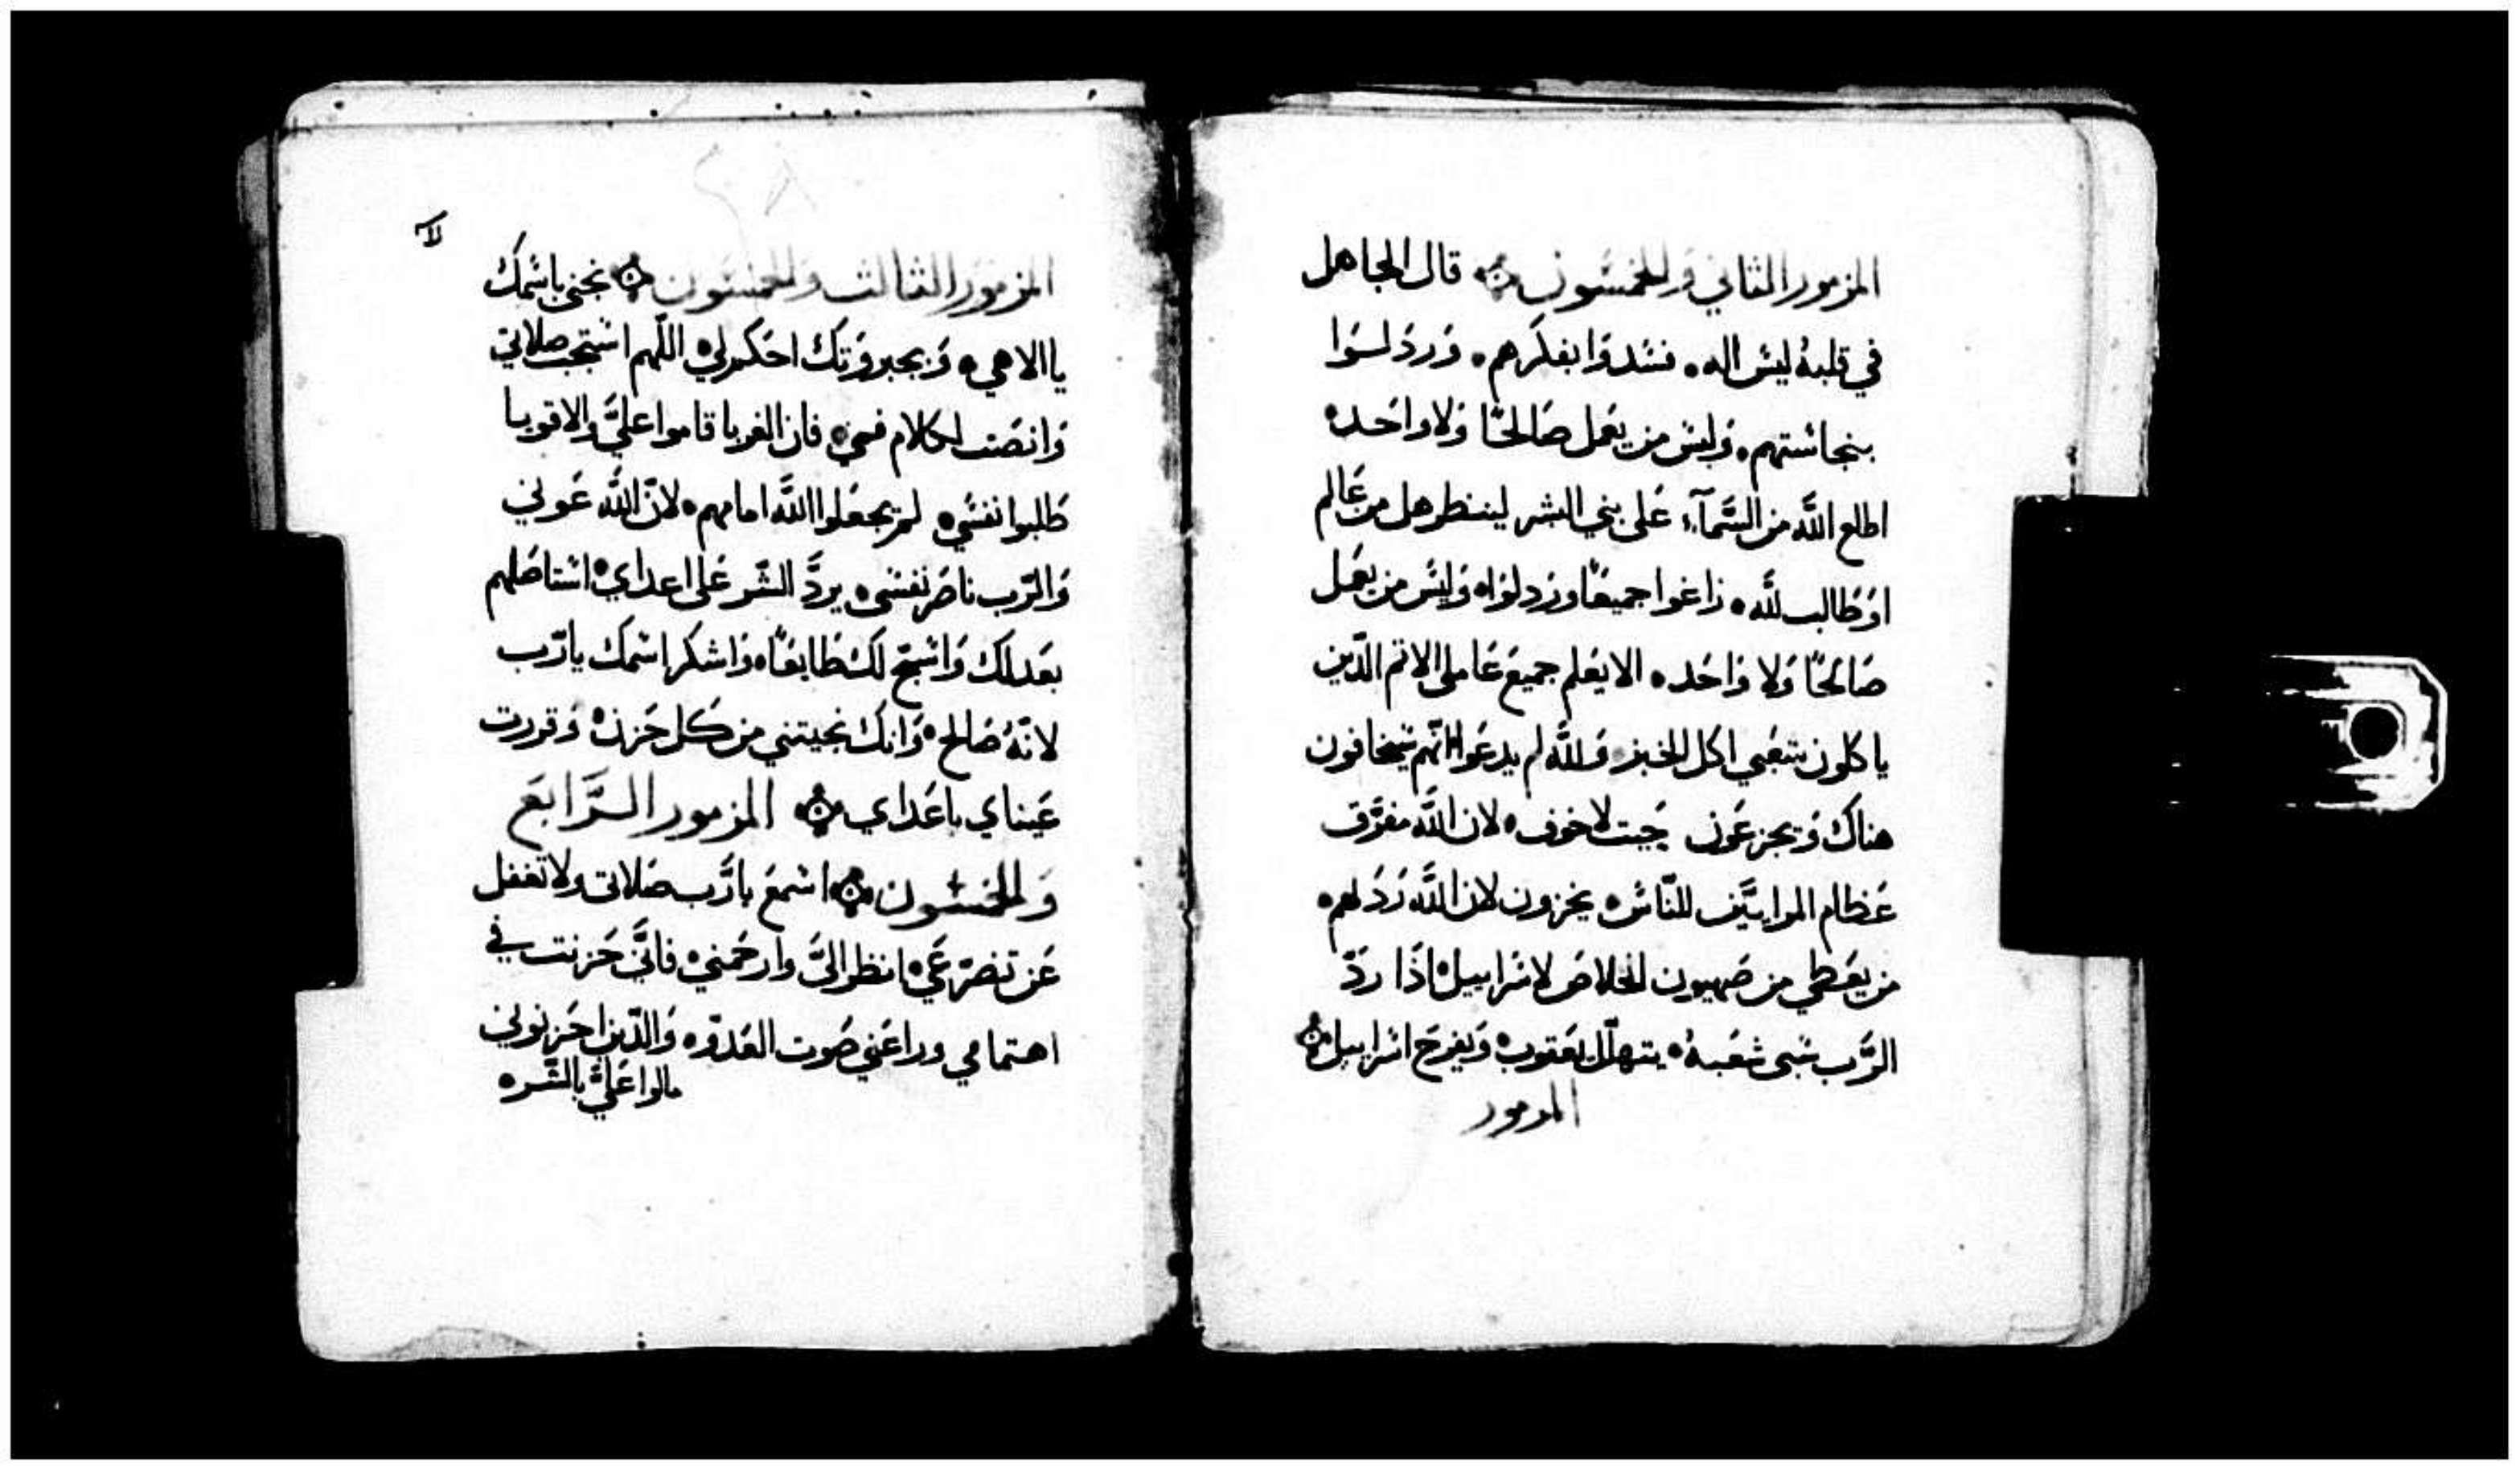 المزمور الثاني والخمسون ۞ قال الجاهل
في قلبهُ ليس اله ٠ فسَدوَا بفكرهم ٠ وَردَلسوَا
بنجاستهم ٠ وَليس من يعمل صَالحًا وَلا واحَد ٥
اطلع اللَّه من السَّمآء عَلى بني البشر لينظر هل من عَالم
اوَ طَالب للَّه ٥ زاغوا جميعًا وردلوَا ٥ وَليسَ من يعمَل
صَالحًا وَلا وَاحَد ٥ الا يعَلم جميعَ عَاملى الاثم الدّين
ياكلون شعَبي اكل الخبز وَللَّه لم يدعَوا انّهم سَيخافون
هناك وَيجزعَون حَيت لاخوف ٥ لان اللَّه مفرَّق
عَظام المراييَّن للنّاس ٥ يخزون لان اللَّه رَدَلهم ٥
من يعَطي من صَهيون الخلاصَ لاسَراييل ٥ اذَا ردّ
الرَّب سَبى شعَبهُ ٥ يتهلّل يعَقوب ٥ وَيفرحَ اسَراييل ۞
المزمور
لا
المزمور الثالث والخمسَون ۞ نجنى باسَمكَ
يا الاهي ٥ وَبجبروَتكَ احَكم لي ٥ اللّهم استجب صلاتي
وَانصَت لكلام فمي ٥ فان الغربا قاموا عليَّ والاقويا
طَلبوا نفسَي ٥ لم يجعَلوا اللَّه امامهم ٥ لانّ اللَّه عَوني
وَالرّب ناصَر نفسَى ٥ يردَّ الشّر عَلى اعداي ٥ استاصَلهم
بعَدلك وَاسَبّح لكَ طَايعًا ٥ وَاشكر اسَمك يا رّب
لانّهُ صَالح ٥ وَانك نجيتني من كل حَزن ٥ وَقررت
عَيناي باعَداي ۞ المزمور الرَّابعَ
وَالخمسَون ۞ اسَمعَ يا رَّب صَلاتي ولا تغفل
عَن تضرّعَي ٥ انظر اليَّ وارحَمني ٥ فانَّي حَزنت في
اهتمامي وراعَني صَوت العَدوّ ٥ وَالدّين احَزنوني
مالوا عَليَّ بالشّر ٥